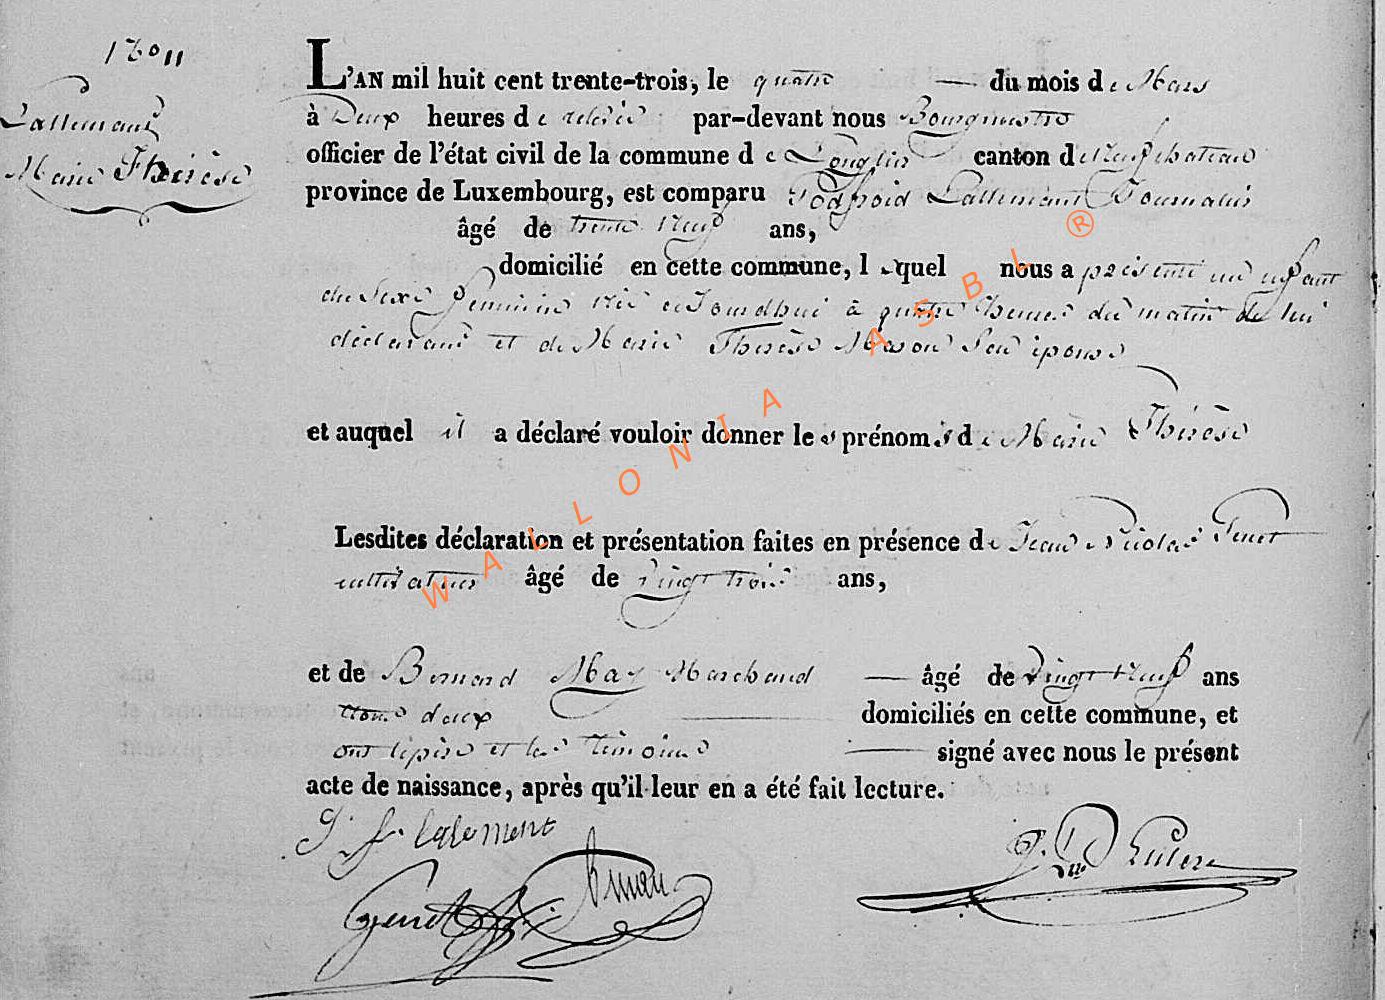 Lallemand
Marie Thérèse
L'AN mil huit cent trente-trois, le quatre du mois de Mars
à Deux heures de relevée par-devant nous Bourgmestre
officier de l'état civil de la commune de Longlier canton de Neufchateau
province de Luxembourg, est comparu Lallemant Journalier
âgé de trente Neuf ans,
domicilié en cette commune, lequel nous a présenté un enfant
du Sexe feminin née aujourdhui à quatre heures du matin de lui
déclarant et de Marie Thérèse Mason Son épouse
et auquel il a déclaré vouloir donner les prénoms de Marie Thérèse
Lesdites déclaration et présentation faites en présence de Jean Nicolas
cultivateur âgé de Vingt trois ans,
et de Bernard May Marchand âgé de Vingt Neuf ans
tous deux domiciliés en cette commune, et
ont le père et les témoins signé avec nous le présent
acte de naissance, après qu'il leur en a été fait lecture.
lalement
WALLONIA ASBL ®